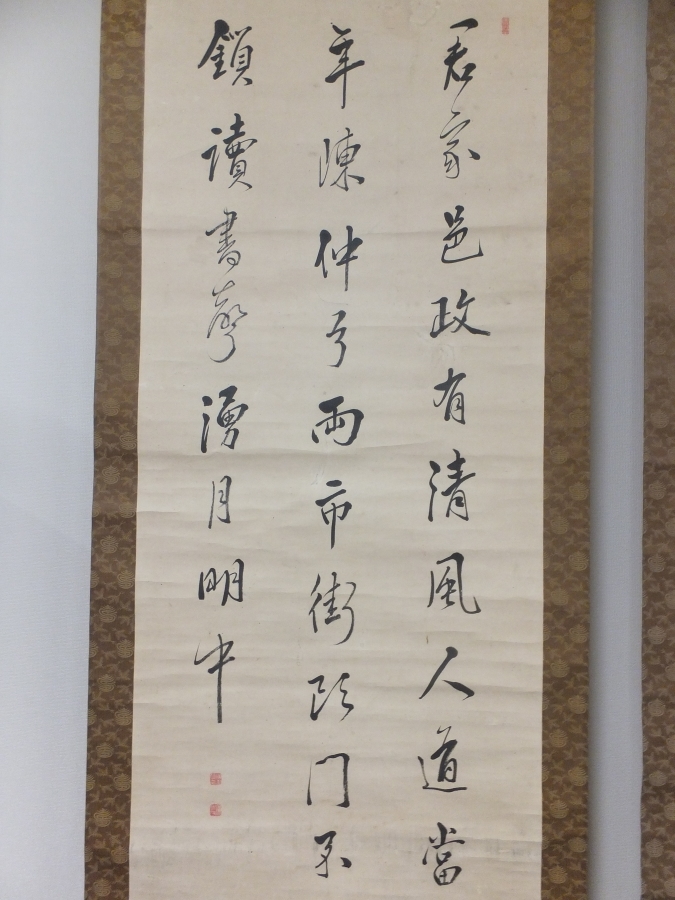 君家邑政有清風人道當
年陳仲弓兩市街頭門不
鎖讀書聲湧月明中